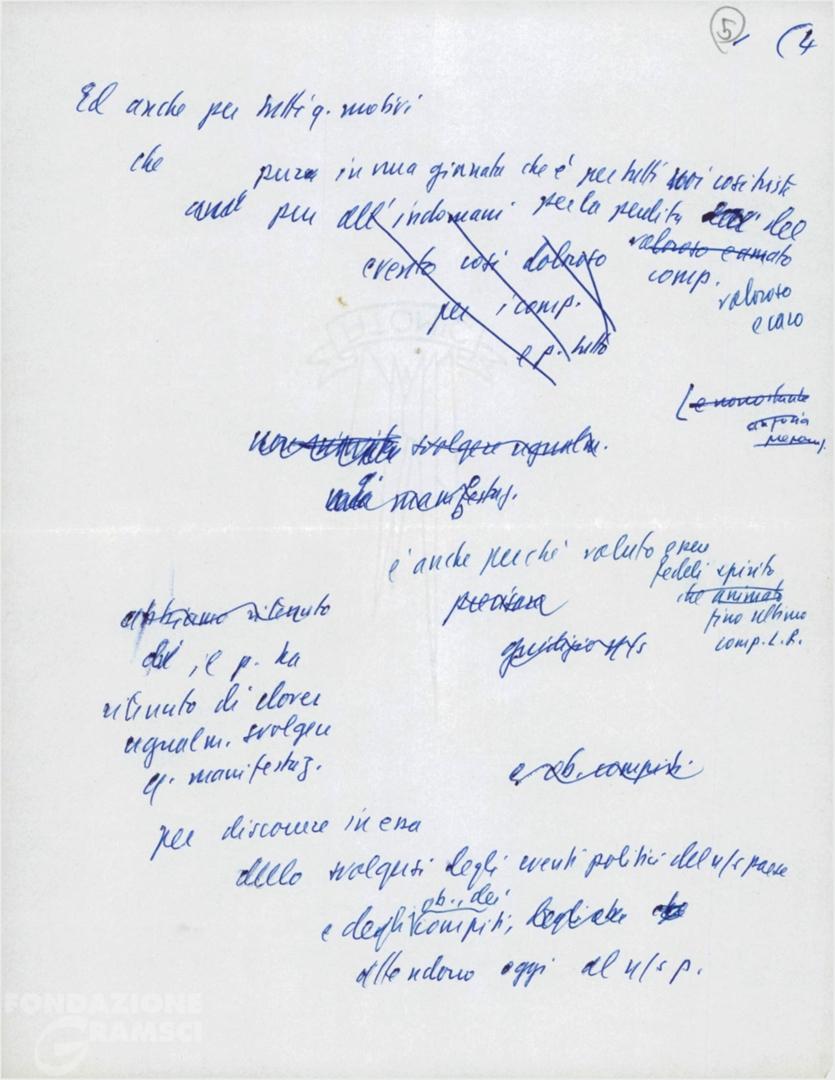 5 (4
Ed anche per tutti q. motivi
che pur in una giornata che è per tutti noi così triste
pur all'indomani per la perdita del
evento così doloroso valoroso e amato
comp.
per i comp. valoroso
e caro
e p. tutto
(e nonostante
svolgere ugualm.
manifestaz.
è anche perché valuto essere
fedeli spirito
abbiamo ritenuto preciso che animato
fino ultimo
giudizio n/s comp. L.R.
il p. ha
ritenuto di dover
ugualm. svolgere
q. manifestaz. e ob. compiti
per discorrere in essa
dello svolgersi degli eventi politici del n/s paese
ob., dei
e degli compiti, che
attendono oggi al n/s p.
FONDAZIONE
GRAMSCI